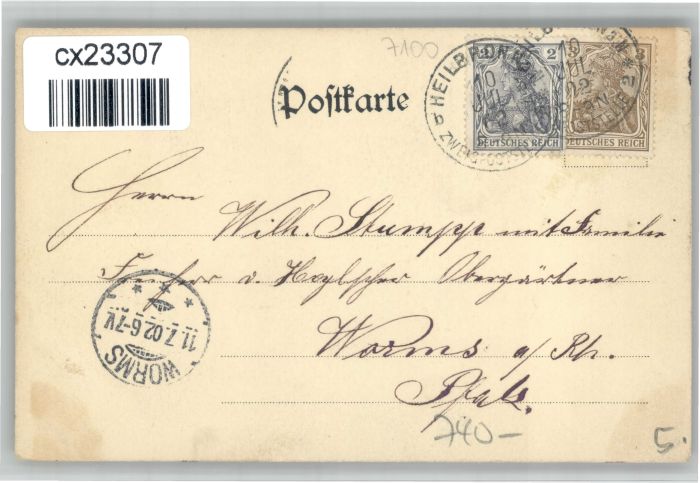 cx23307
7100
Postkarte
HEILBRONN
10 JUL 02
ZWEIGPOSTSTELLE
2 2
DEUTSCHES REICH
3
DEUTSCHES REICH
Herrn
Wilh. Stumpp mit Familie
Freiherr v. Heyl'scher Obergärtner
Worms a/Rh.
Pfalz.
WORMS
11.7.02.6-7V.
740-
5.